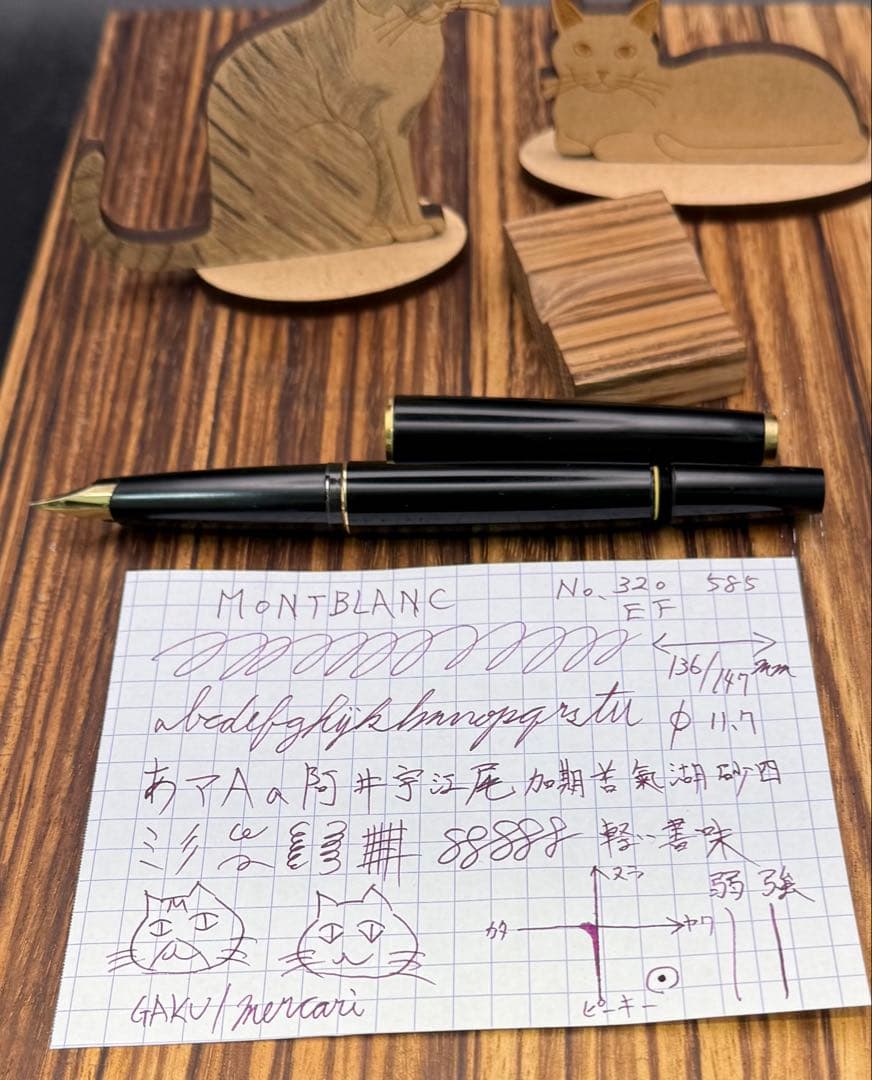 MONTBLANC No. 320 585
EF
136/147mm
abcdefghijklmnopqrstu φ 11.7
あアAa阿井宇江尾加期苦氣湖砂四
軽い書味
スラ
弱 強
カタ ヤワ
ピーキー
GAKU/mercari